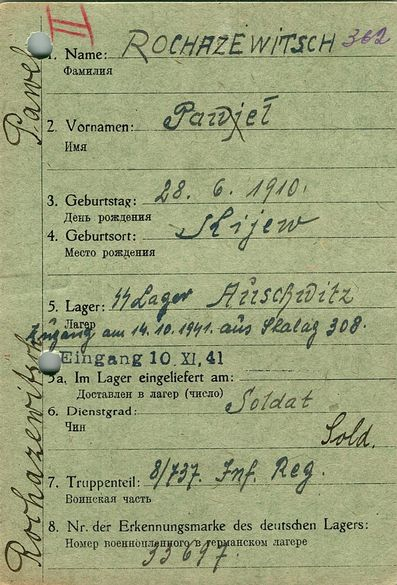 II
1. Name: ROCHAZEWITSCH 302
Фамилия
2. Vornamen: Pawjeł
Имя
3. Geburtstag: 28. 6. 1910.
День рождения
4. Geburtsort: Kijew
Место рождения
5. Lager: SS Lager Auschwitz
Лагерь
Zugang am 14.10.1941. aus Stalag 308.
Eingang 10 XI, 41
5a, Im Lager eingeliefert am:
Доставлен в лагер (число)
6. Dienstgrad: Soldat
Чин
Sold.
7. Truppenteil: 8/737. Inf. Reg.
Воинская часть
8. Nr. der Erkennungsmarke des deutschen Lagers:
Номер военнопленного в германском лагере
33697.
Rochazewitsch Pawel